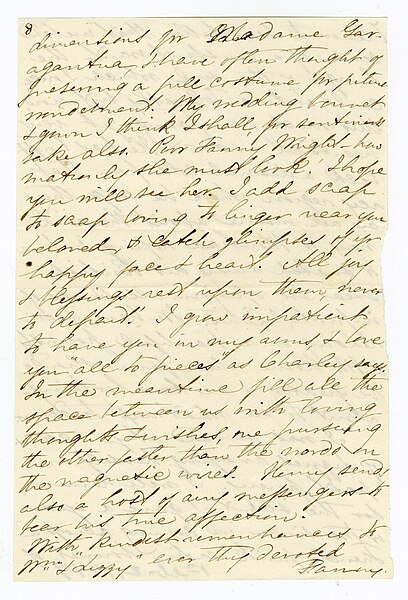 8
dimentions for Madame Gar-
agantua, I have often thought of
preserving a full costume for future
wonderment! My wedding bonnet
& gown I think I shall, for sentiments
sake also. Poor Fanny Wright – how
matronly she must look! I hope
you will see her. I add scrap
to scrap loving to linger near you
beloved, & catch glimpses of yr
happy face & heart. All joy
& blessings rest upon them, never
to depart! I grow impatient
to have you in my arms, & love
you "all to pieces" as Charley says.
In the meantime fill all the
space between us with loving
thoughts & wishes, one pursuing
the other faster than the words on
the magnetic wires. Henry sends
also a host of airy messengers to
bear his true affection.
With kindest remembrances to
Wm & "Lizzy" ever thy devoted
Fanny.